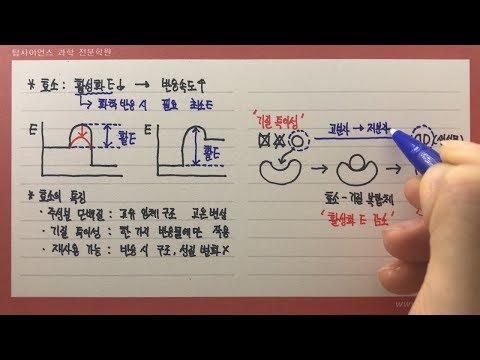 탑사이언스 과학 전문학원
* 효소 : 활성화 E↓ → 반응속도↑
→ 화학 반응 시 필요 최소 E
E
활E
E
활E
* 효소의 특징
· 주성분 단백질 : 고유 입체 구조 고온 변성
· 기질 특이성 : 한 가지 반응물에만 작용
· 재사용 가능 : 반응 시 구조, 성질 변화 X
"기질 특이성"
고분자 → 저분자
효소-기질 복합체
"활성화 E 감소"
www.